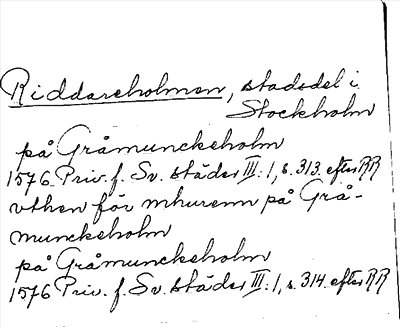 Riddareholmen, stadsdel i
Stockholm
på Gråmunckeholm
1576 Priv. f. Sv. städer III:1, s. 313. efter RR
vthen för mhurenn på Grå-
munckeholm
på Gråmunckeholm
1576 Priv. f. Sv. städer III:1, s. 314. efter RR